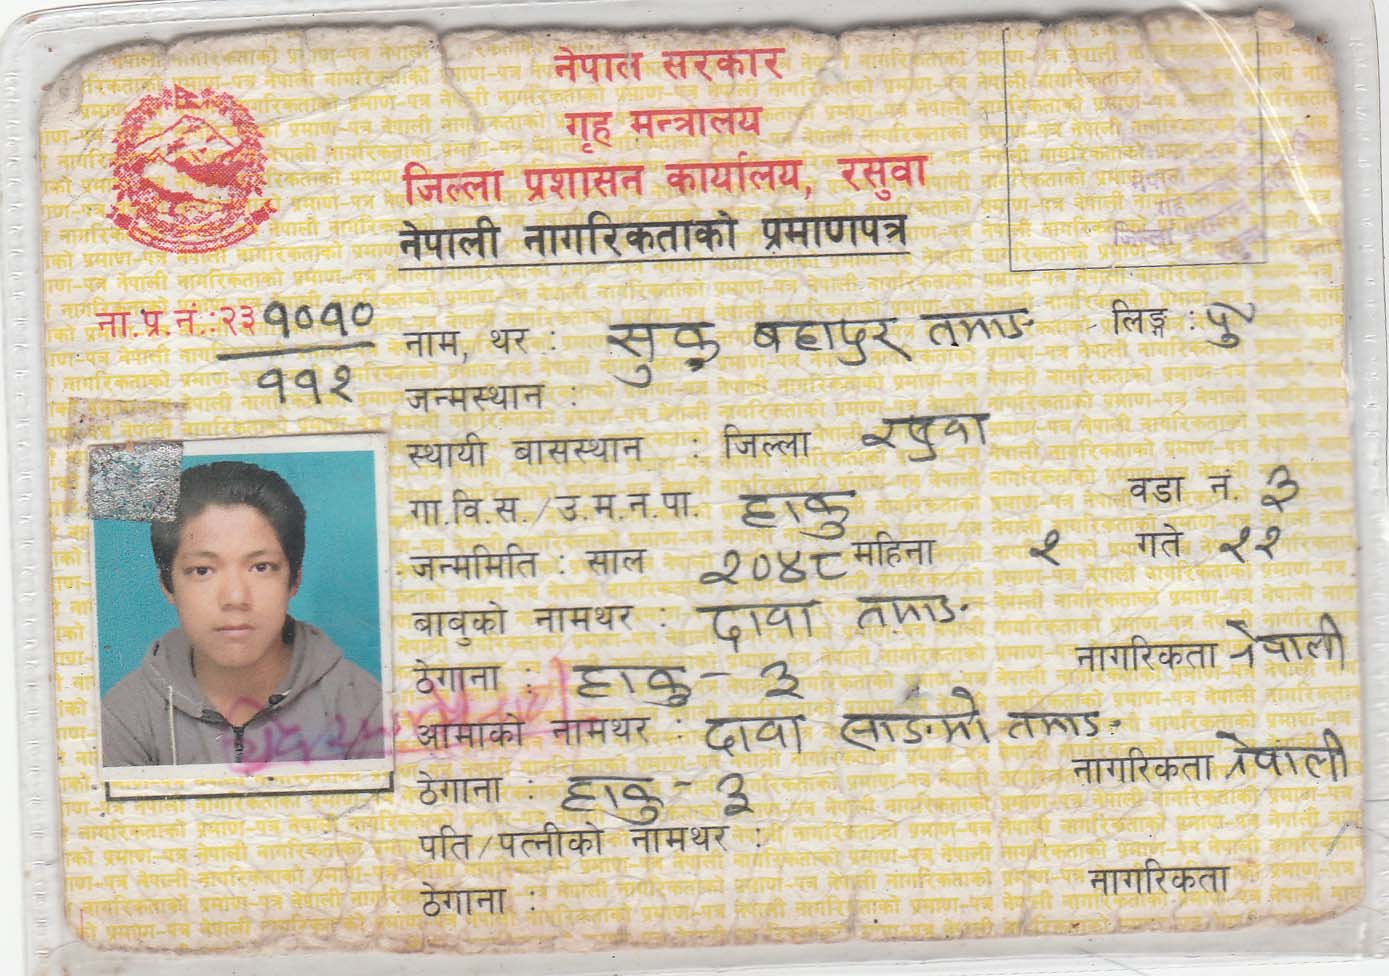 नेपाल सरकार
गृह मन्त्रालय
जिल्ला प्रशासन कार्यालय, रसुवा
नेपाली नागरिकताको प्रमाणपत्र
ना.प्र.नं.:२३ १०१०
११२
नाम, थर : सुकु बहादुर तमाङ लिङ्ग : पु
जन्मस्थान :
स्थायी बासस्थान : जिल्ला रसुवा
गा.वि.स./उ.म.न.पा. हाकु वडा नं. ३
जन्ममिति : साल २०४८ महिना २ गते २२
बाबुको नामथर : दावा तमाङ
ठेगाना : हाकु - ३ नागरिकता नेपाली
आमाको नामथर : दावा ल्हाङमो तमाङ
ठेगाना : हाकु - ३ नागरिकता नेपाली
पति/पत्नीको नामथर :
ठेगाना : नागरिकता